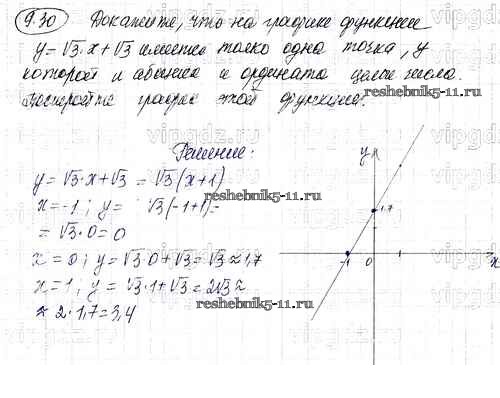 9.30 Докажите, что на графике функции
y = √3·x + √3 имеется только одна точка, у
которой и абсцисса и ордината целые числа.
Постройте график этой функции.
reshebnik5-11.ru
Решение:
y = √3·x + √3 = √3(x+1)
x = -1; y = √3(-1+1) =
= √3·0 = 0
x = 0; y = √3·0 + √3 = √3 ≈ 1,7
x = 1, y = √3·1 + √3 = 2√3 ≈
≈ 2·1,7 = 3,4
reshebnik5-11.ru
reshebnik5-11.ru
y
1,7
-1 0 x
vipgdz.ru